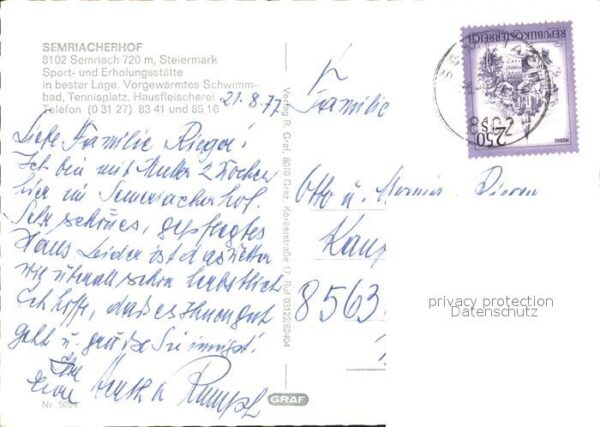 SEMRIACHERHOF
8102 Semriach 720 m, Steiermark
Sport- und Erholungsstätte
in bester Lage. Vorgewärmtes Schwimm-
bad, Tennisplatz, Hausfleischerei
Telefon (0 31 27) 83 41 und 85 16
21.8.77
Liebe Familie Rieger!
Ich bin mit Mutter 2 Wochen
hier im Semriacherhof.
Sehr schönes, gepflegtes
Haus. Leider ist das Wetter
wie überall schon herbstlich
Ich hoffe, daß es Ihnen gut
geht u. grüße Sie innigst!
Ihre
Nr. 5091
Verlag R. Graf, 8010 Graz, Korösistraße 17, Ruf 03122/62404
GRAF
Familie
Otto u.
8563
REPUBLIK ÖSTERREICH
2.50
MURAU
privacy protection
Datenschutz